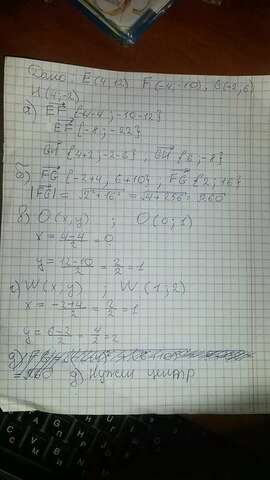 Дано: E(4;12) F(-4;-10), G(-2;6)
H(4;-2)
а) EF {-4-4; -10-12}
EF {-8; -22}
GH {4+2; -2-6}, GH {6; -8}
б) FG {-2+4, 6+10}, FG {2; 16}
|FG| = √2²+16² = √4+256 = 260
в) O(x;y) ; O(0;1)
x = 4-4/2 = 0
y = 12-10/2 = 2/2 = 1
г) W(x;y) ; W(1;2)
x = -2+4/2 = 2/2 = 1
y = 6-2/2 = 4/2 = 2
д) Нужен центр